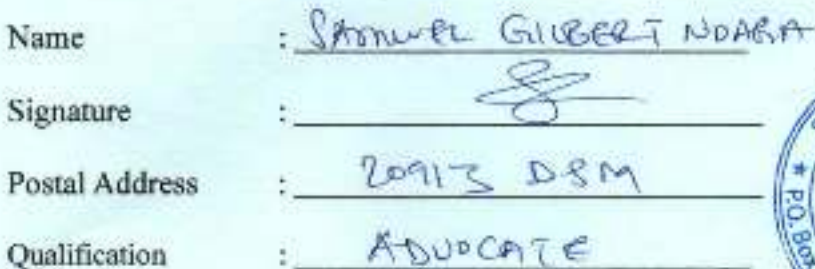 Name : SAMUEL GILBERT NDABA
Signature :
Postal Address : 20913 DSM
Qualification : ADVOCATE
* P.O. Box